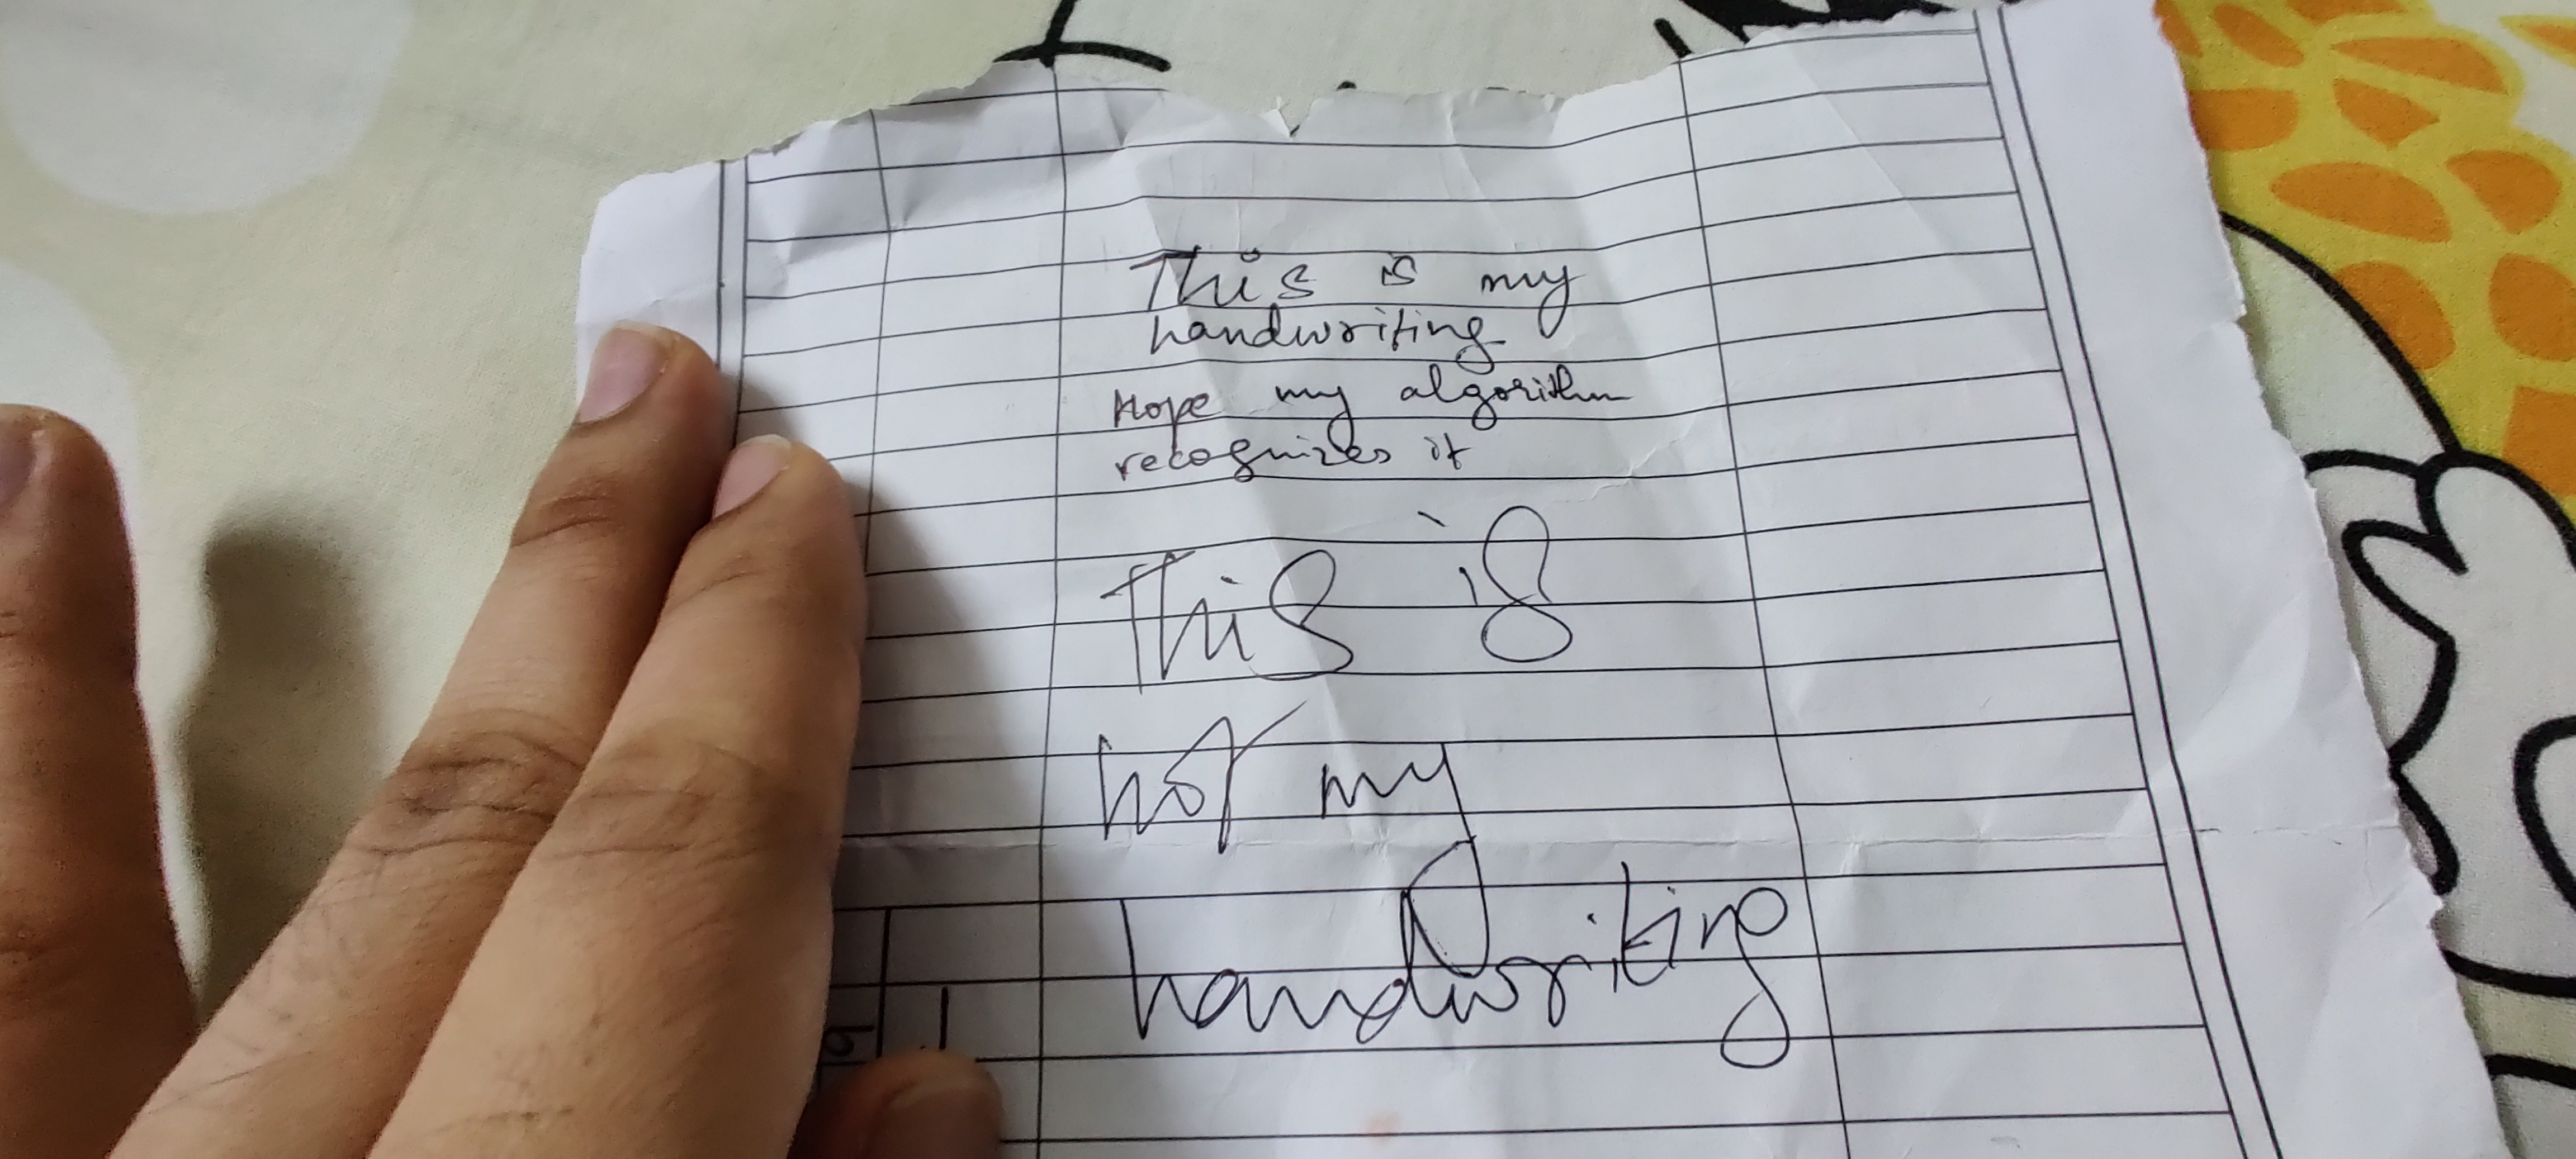 This is my
handwriting
Hope my algorithm
recognizes it
This is
not my
handwriting